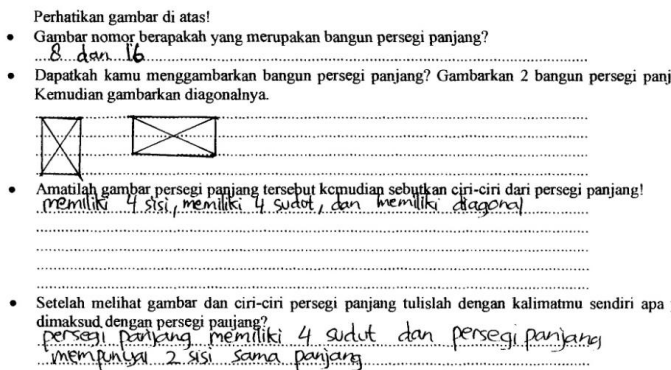 Perhatikan gambar di atas!
• Gambar nomor berapakah yang merupakan bangun persegi panjang?
8 dan 16
• Dapatkah kamu menggambarkan bangun persegi panjang? Gambarkan 2 bangun persegi panj
Kemudian gambarkan diagonalnya.
• Amatilah gambar persegi panjang tersebut kemudian sebutkan ciri-ciri dari persegi panjang!
memiliki 4 sisi, memiliki 4 sudut, dan memiliki diagonal
• Setelah melihat gambar dan ciri-ciri persegi panjang tulislah dengan kalimatmu sendiri apa
dimaksud dengan persegi panjang?
persegi panjang memiliki 4 sudut dan persegi panjang
mempunyai 2 sisi sama panjang